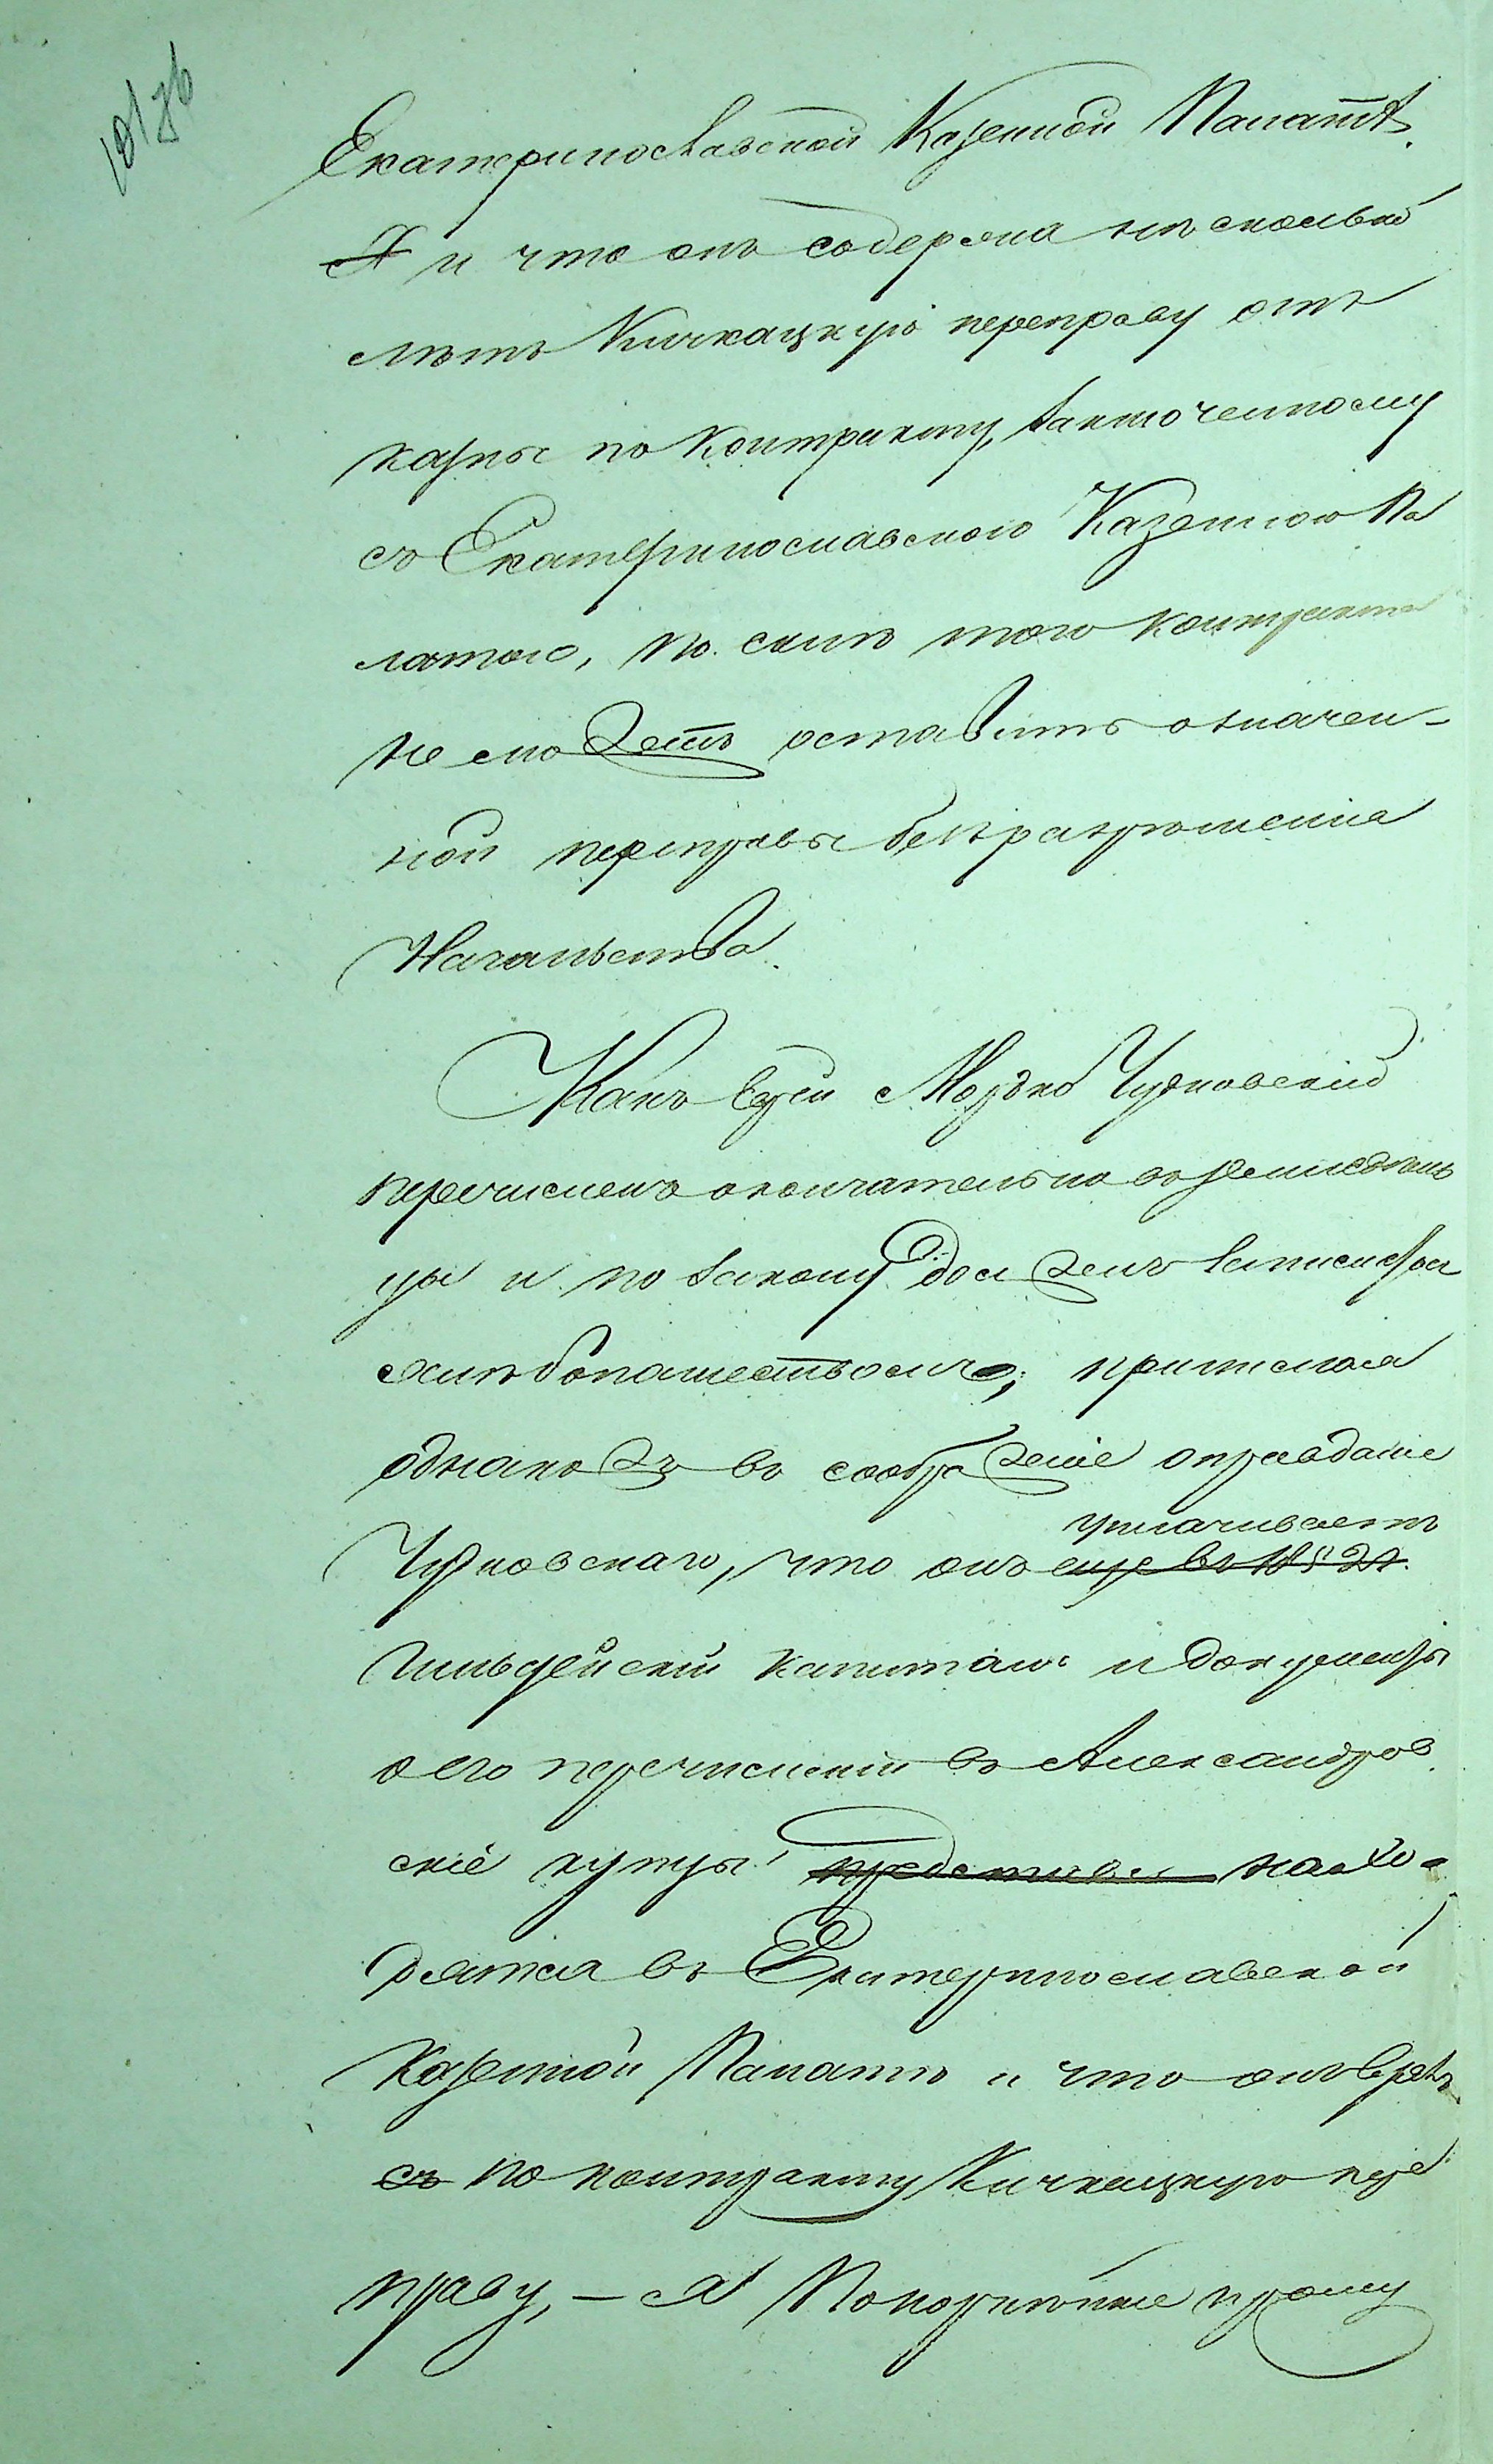 Екатеринославской Казенной Палатѣ.
и что онъ содержа нѣсколько
лѣтъ Кичкацкую переправу отъ
казны по контракту, заключенному
съ Екатеринославскою Казенною Па
латою, по силѣ того контракта
не можетъ оставить означен-
ной переправы безъ разрѣшенія
Начальства.
Какъ Еврей Мордко Чудновскій
перечисленъ окончательно въ земледѣль
цы и по закону долженъ заниматься
хлѣбопашествомъ; принимая
однакожъ въ соображеніе оправданіе
уплачиваетъ
Чудновскаго, что онъ еще въ 1852 г.
гильдейскій капиталъ и документы
о его перечисленіи въ Александров
скіе купцы представи нахо-
дятся въ Екатеринославской
Казенной Палатѣ и что онъ
съ по контракту Кичкацкую пере
праву, – я Покорнѣйше прошу